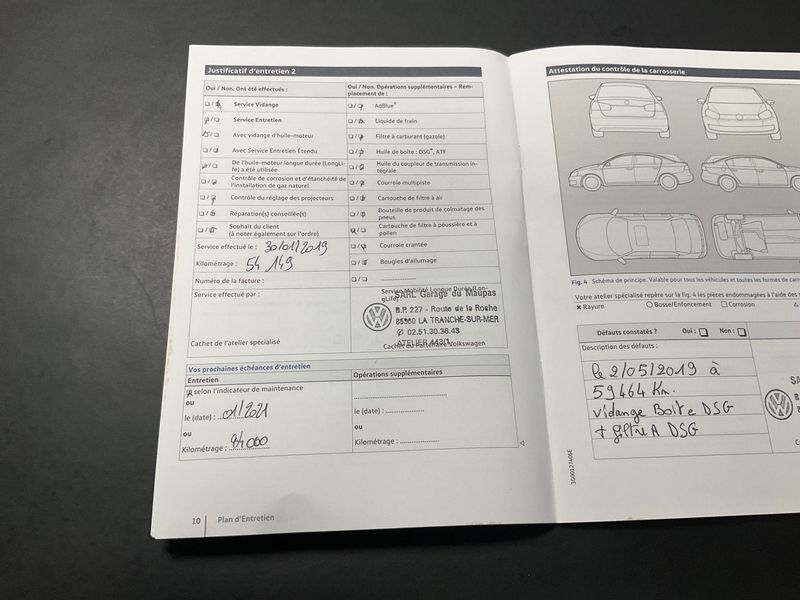 Justificatif d'entretien 2
Oui / Non. Ont été effectués :
Service Vidange
Service Entretien
Avec vidange d'huile-moteur
Avec Service Entretien Étendu
De l'huile-moteur longue durée (LongLi-
fe) a été utilisée
Contrôle de corrosion et d'étanchéité de
l'installation de gaz naturel
Contrôle du réglage des projecteurs
Réparation(s) conseillée(s)
Souhait du client
(à noter également sur l'ordre)
Service effectué le : 30/01/2019
Kilométrage : 54 149
Numéro de la facture :
Service effectué par :
Cachet de l'atelier spécialisé
Oui / Non. Opérations supplémentaires – Rem-
placement de :
AdBlue®
Liquide de frein
Filtre à carburant (gazole)
Huile de boîte : DSG®, ATF
Huile du coupleur de transmission in-
tégrale
Courroie multipiste
Cartouche de filtre à air
Bouteille de produit de colmatage des
pneus
Cartouche de filtre à poussière et à
pollen
Courroie crantée
Bougies d'allumage
Service Mobilité Longue Durée (Lon-
gLife) :
SARL Garage du Maupas
B.P. 227 - Route de la Roche
85360 LA TRANCHE-SUR-MER
✆ 02.51.30.38.43
ATELIER
Cachet du Partenaire Volkswagen
Vos prochaines échéances d'entretien
Entretien
selon l'indicateur de maintenance
ou
le (date) : 01/2021
ou
Kilométrage : 84 000
Opérations supplémentaires
le (date) :
ou
Kilométrage :
10 Plan d'Entretien
Attestation du contrôle de la carrosserie
Fig. 4 Schéma de principe. Valable pour tous les véhicules et toutes les formes de
Votre atelier spécialisé repère sur la fig. 4 les pièces endommagées à l'aide des
× Rayure Bosse/Enfoncement Corrosion
Défauts constatés ? Oui : Non :
Description des défauts :
le 2/05/2019 à
59464 Km.
vidange Boite DSG
+ filtre A DSG
3G0012740SE